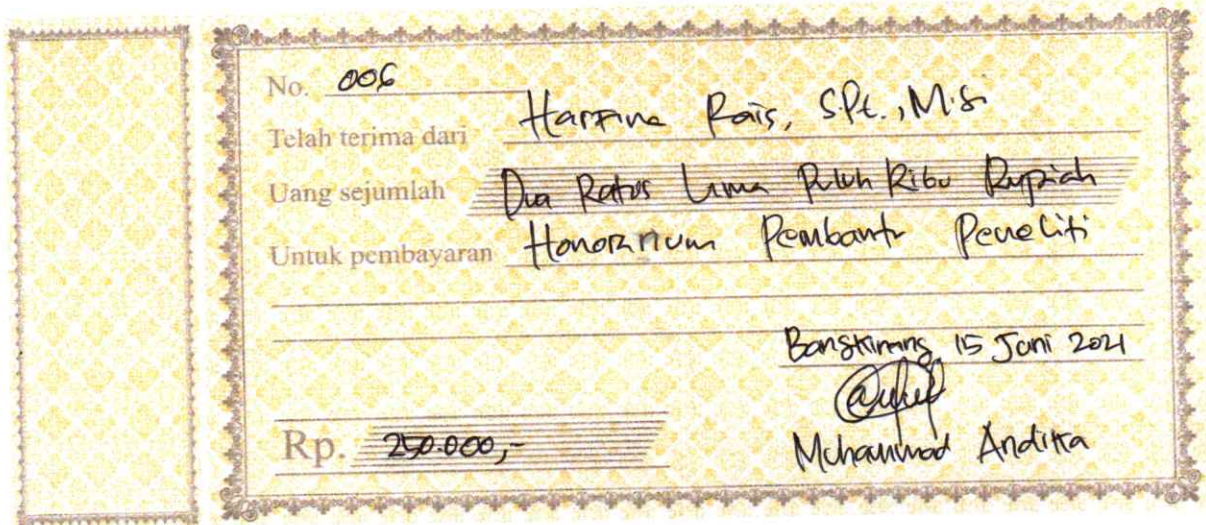 No. 006
Telah terima dari Harfina Rais, S.Pt., M.Si
Uang sejumlah Dua Ratus Lima Puluh Ribu Rupiah
Untuk pembayaran Honorarium Pembantu Peneliti
Bangkinang, 15 Juni 2021
Rp. 250.000,-
Muhammad Anditra